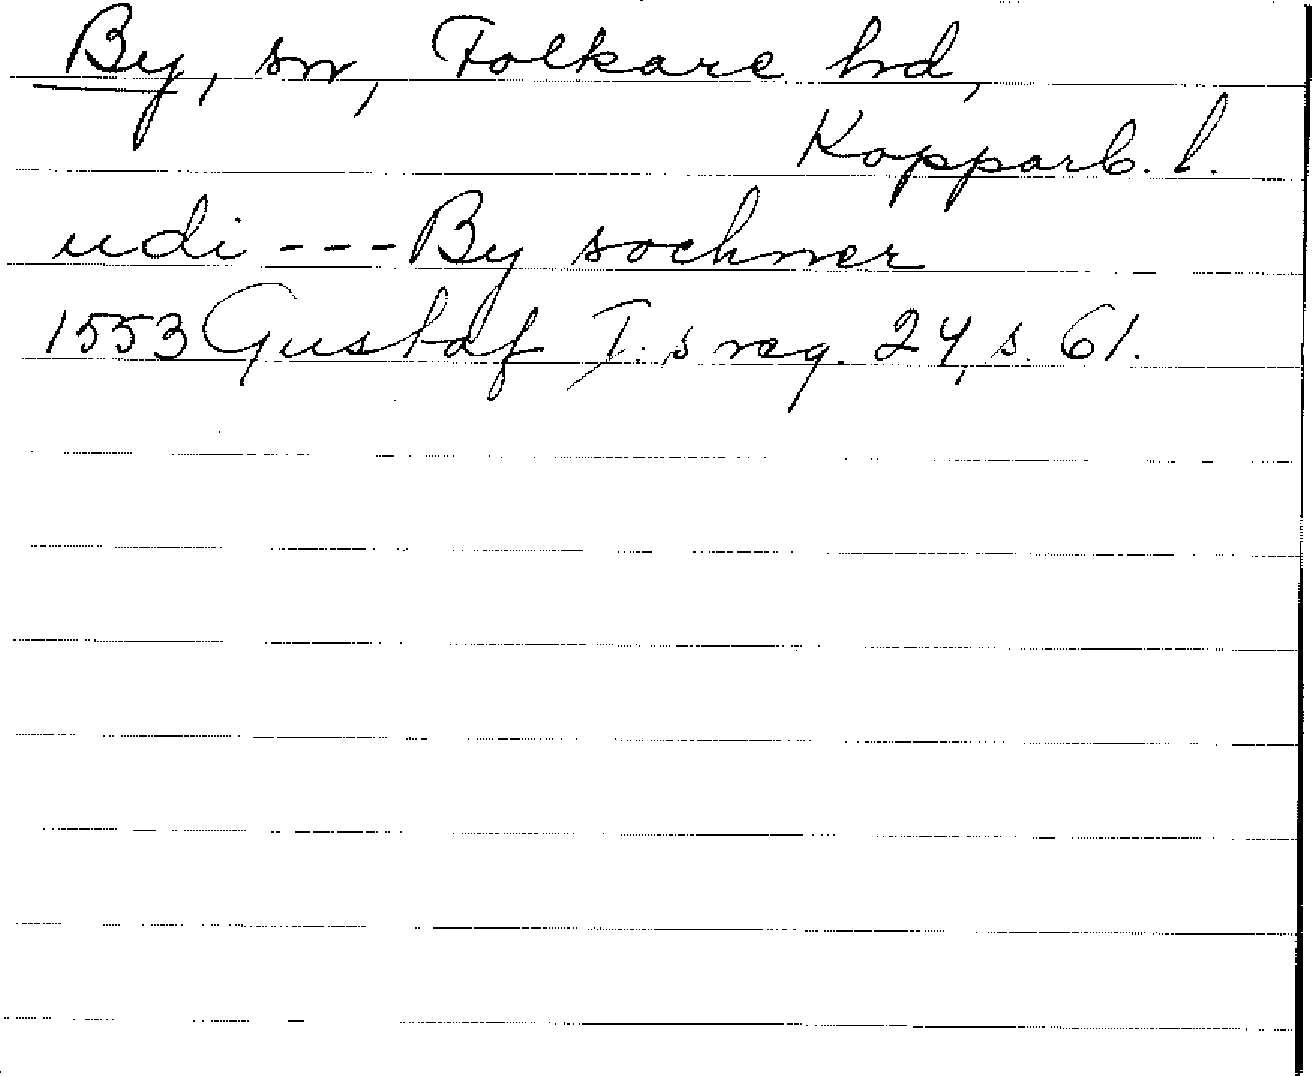 By, sn, Folkare hd,
Kopparb. l.
udi --- By sochner
1553 Gustaf I.s reg. 24, s. 61.